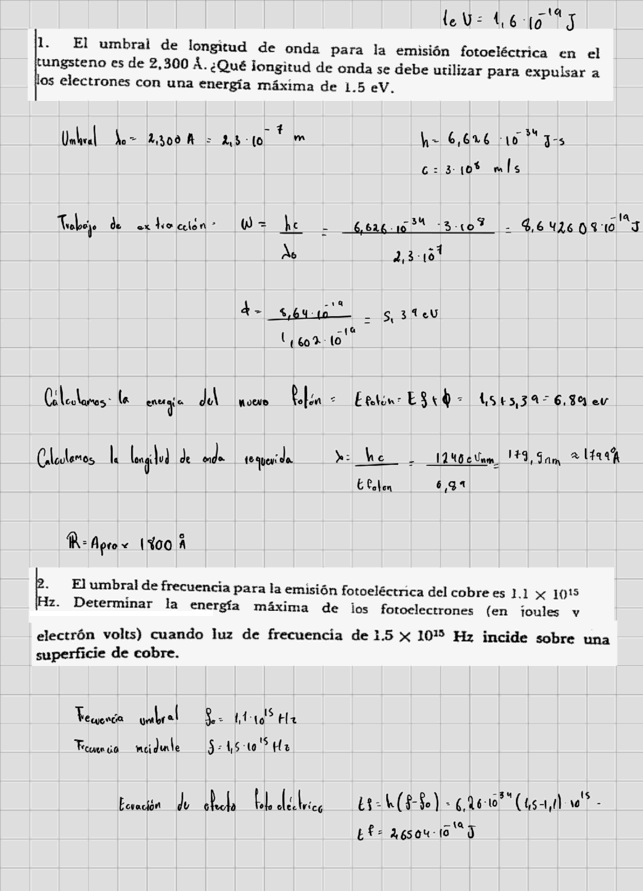 1eV = 1,6·10⁻¹⁹ J
1. El umbral de longitud de onda para la emisión fotoeléctrica en el
tungsteno es de 2,300 Å. ¿Qué longitud de onda se debe utilizar para expulsar a
los electrones con una energía máxima de 1.5 eV.
Umbral λ₀ = 2,300 A = 2,3·10⁻⁷ m
h = 6,626 ·10⁻³⁴ J·s
c = 3·10⁸ m/s
Trabajo de extracción. W = hc/λ₀ = 6,626·10⁻³⁴ · 3·10⁸ / 2,3·10⁻⁷ = 8,642608·10⁻¹⁹ J
ϕ = 8,64·10⁻¹⁹ / 1,602·10⁻¹⁹ = 5,39 eV
Cálculamos la energia del nuevo fotón = Efotón = Ef + ϕ = 1,5 + 5,39 = 6,89 eV
Calculamos la longitud de onda requerida λ = hc/Efoton = 1240 eV nm / 6,89 = 179,9 nm ≈ 1799 Å
R = Aprox 1800 Å
2. El umbral de frecuencia para la emisión fotoeléctrica del cobre es 1.1 × 10¹⁵
Hz. Determinar la energía máxima de los fotoelectrones (en joules y
electrón volts) cuando luz de frecuencia de 1.5 × 10¹⁵ Hz incide sobre una
superficie de cobre.
Frecuencia umbral f₀ = 1,1·10¹⁵ Hz
Frecuencia incidente f = 1,5·10¹⁵ Hz
Ecuación de efecto fotoeléctrico Ef = h(f-f₀) = 6,26·10⁻³⁴ (1,5-1,1)·10¹⁵ =
Ef = 2,6504·10⁻¹⁹ J